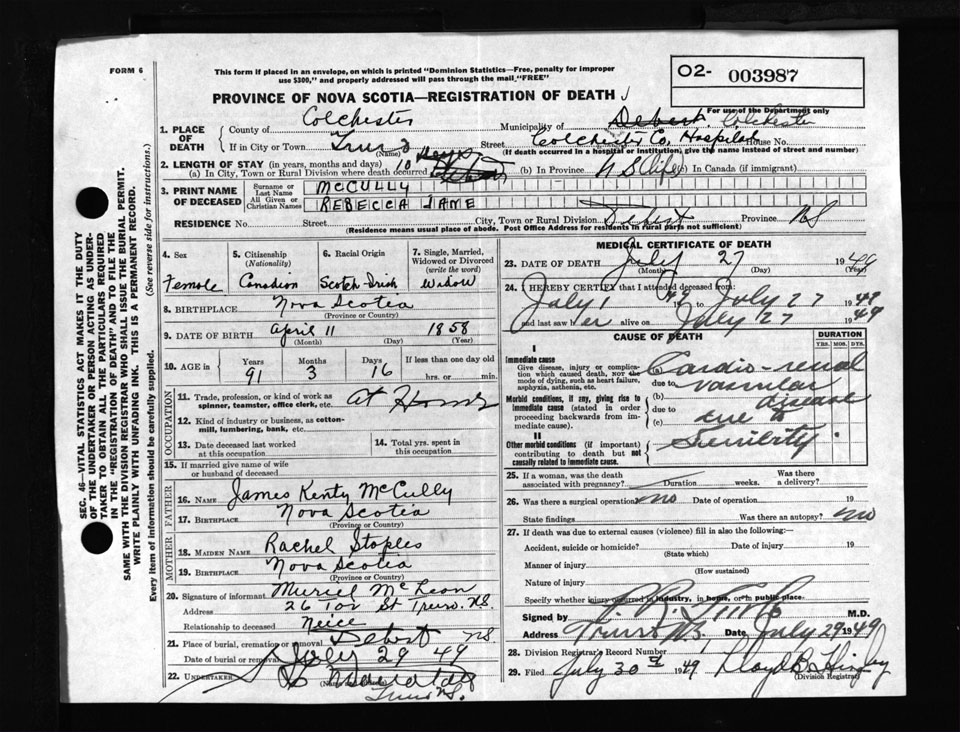 FORM 6
This form if placed in an envelope, on which is printed "Dominion Statistics—Free, penalty for improper
use $300," and properly addressed will pass through the mail, "FREE"
O2- 003987
For use of the Department only
PROVINCE OF NOVA SCOTIA—REGISTRATION OF DEATH
1. PLACE OF DEATH
County of Colchester Municipality of Debert Colchester
If in City or Town Truro (Name) Street Colchester Co. Hospital House No.
(If death occurred in a hospital or institution, give the name instead of street and number)
2. LENGTH OF STAY (in years, months and days)
(a) In City, Town or Rural Division where death occurred 10 days (b) In Province N S Life (c) In Canada (if immigrant)
3. PRINT NAME OF DECEASED
Surname or Last Name McCULLY
All Given or Christian Names REBECCA JANE
RESIDENCE No. Street City, Town or Rural Division Debert Province NS
(Residence means usual place of abode. Post Office Address for residents in rural parts not sufficient)
4. Sex Female
5. Citizenship (Nationality) Canadian
6. Racial Origin Scotch-Irish
7. Single, Married, Widowed or Divorced (write the word) Widow
8. BIRTHPLACE Nova Scotia
(Province or Country)
9. DATE OF BIRTH April 11 1858
(Month) (Day) (Year)
10. AGE in Years 91 Months 3 Days 16 If less than one day old
hrs. or min.
OCCUPATION
11. Trade, profession, or kind of work as
spinner, teamster, office clerk, etc. At Home
12. Kind of industry or business, as cotton-
mill, lumbering, bank, etc.
13. Date deceased last worked
at this occupation
14. Total yrs. spent in
this occupation
15. If married give name of wife
or husband of deceased
FATHER
16. NAME James Kenty McCully
17. BIRTHPLACE Nova Scotia
(Province or Country)
MOTHER
18. MAIDEN NAME Rachel Staples
19. BIRTHPLACE Nova Scotia
(Province or Country)
20. Signature of informant Muriel McLean
Address 26 St Truro. N.S.
Relationship to deceased Neice
21. Place of burial, cremation or removal Debert NS.
Date of burial or removal July 29 49
22. UNDERTAKER
(Name and address)
Truro N.S.
MEDICAL CERTIFICATE OF DEATH
23. DATE OF DEATH July 27 1949
(Month) (Day) (Year)
24. I HEREBY CERTIFY that I attended deceased from:
July 1 49 to July 27 1949
and last saw her alive on July 27 1949
CAUSE OF DEATH
DURATION
YRS. MOS. DYS.
I
Immediate cause
Give disease, injury or complica-
tion which caused death, NOT the
mode of dying, such as heart failure,
asphyxia, asthenia, etc.
Cardio-renal
due to vascular
Morbid conditions, if any, giving rise to
immediate cause (stated in order
proceeding backwards from im-
mediate cause).
(b) disease
due to
(c) due to
II
Other morbid conditions (if important)
contributing to death but not
causally related to immediate cause.
Senility
25. If a woman, was the death
associated with pregnancy? Duration weeks. Was there
a delivery?
26. Was there a surgical operation? no Date of operation 19
State findings Was there an autopsy? no
27. If death was due to external causes (violence) fill in also the following:
Accident, suicide or homicide? Date of injury 19
(State which)
Manner of injury
(How sustained)
Nature of injury
Specify whether injury occurred in industry, in home, or in public place.
Signed by M.D.
Address Truro N.S. Date July 29 1949
28. Division Registrar's Record Number
29. Filed July 30th 1949 Lloyd B.
(Division Registrar)
SEC. 46—VITAL STATISTICS ACT MAKES IT THE DUTY
OF THE UNDERTAKER OR PERSON ACTING AS UNDER-
TAKER TO OBTAIN ALL THE PARTICULARS REQUIRED
IN THE "REGISTRATION OF DEATH" AND TO FILE THE
SAME WITH THE DIVISION REGISTRAR WHO SHALL ISSUE THE BURIAL PERMIT.
WRITE PLAINLY WITH UNFADING INK. THIS IS A PERMANENT RECORD.
Every item of information should be carefully supplied. (See reverse side for instructions.)